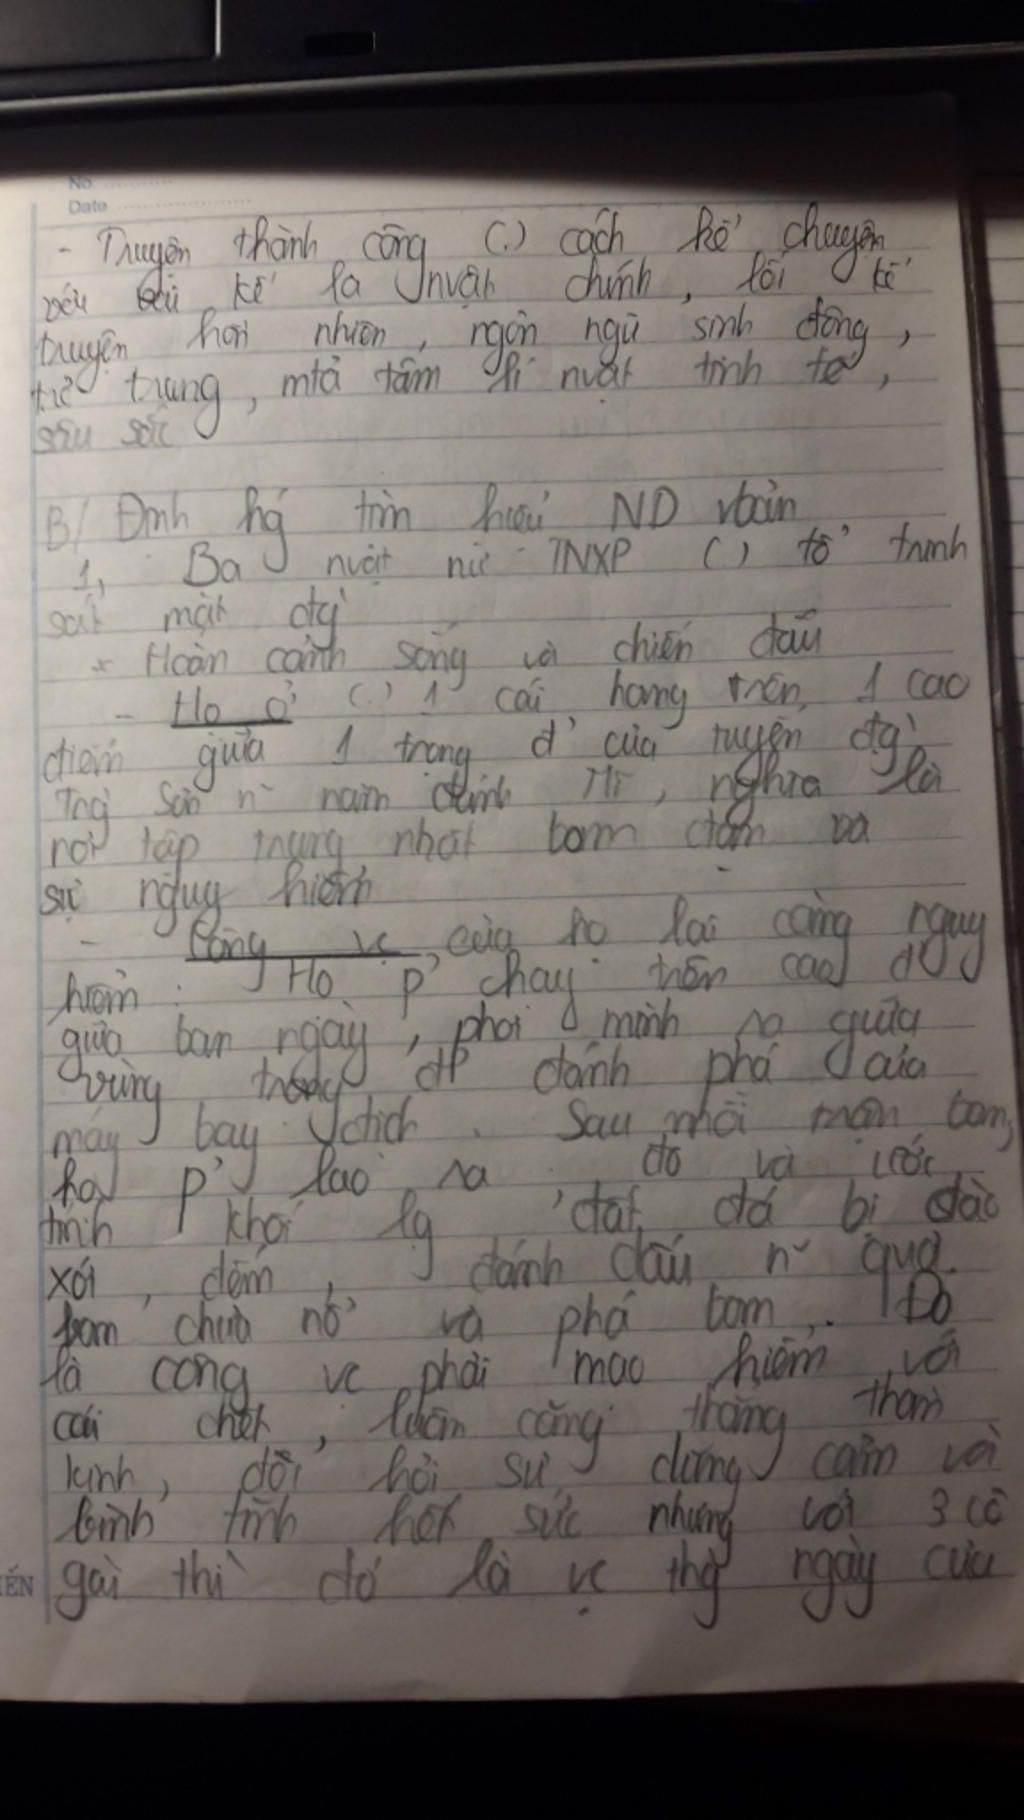 No.
Date
- Truyện thành công (.) cách kể chuyện
kể là nvật chính, lối kể
truyện hơi nhiên, ngôn ngữ sinh động,
trẻ trung, mtả tâm lí nvật tinh tế,
sâu sắc
B/ Định hg tìm hiểu ND vbản
1, Ba nvật nữ TNXP (.) tổ trinh
sát mặt đg
* Hoàn cảnh sống và chiến đấu
- Họ ở (.) 1 cái hang trên 1 cao
điểm giữa 1 trọng đ' của tuyến đg
Trg Sơn n~ năm đánh Mĩ, nghĩa là
nơi tập trung nhất bom đạn và
sự nguy hiểm
- Công vc của họ lại càng nguy
hiểm: Họ p' chạy trên cao đ'
giữa ban ngày, phơi mình ra giữa
vùng trọng đ' đánh phá của
máy bay địch. Sau mỗi trận bom,
họ p' lao ra đo và ước
tính khối lg đất đá bị đào
xới, đếm, đánh dấu n~ quả
bom chưa nổ và phá bom. Đó
là công vc phải mạo hiểm với
cái chết, luôn căng thẳng thần
kinh, đòi hỏi sự dũng cảm và
bình tĩnh hết sức nhưng với 3 cô
gái thì đó là vc thg ngày của
ẾN